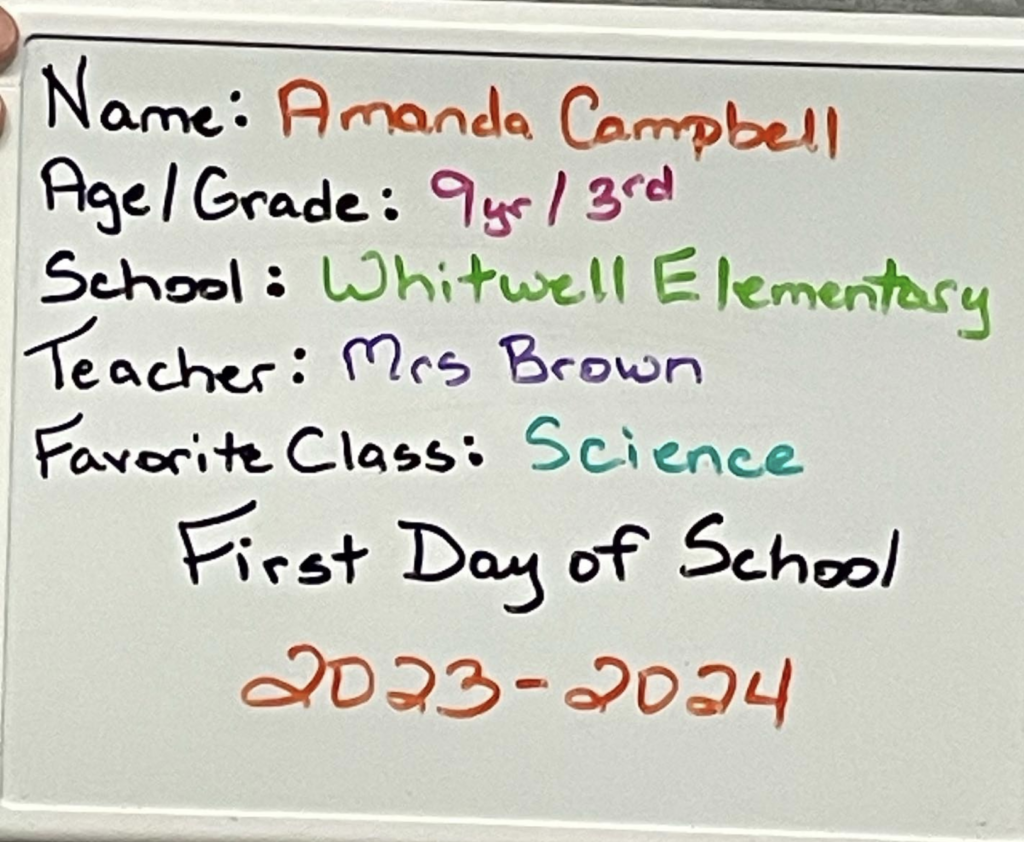 Name: Amanda Campbell
Age/Grade: 9yr/3rd
School: Whitwell Elementary
Teacher: Mrs Brown
Favorite Class: Science
First Day of School
2023-2024